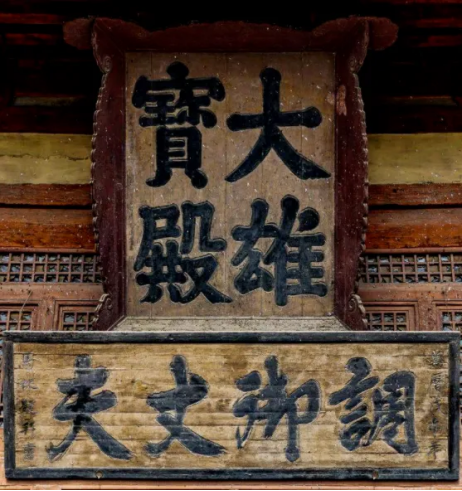 大雄
寶殿
調御丈夫